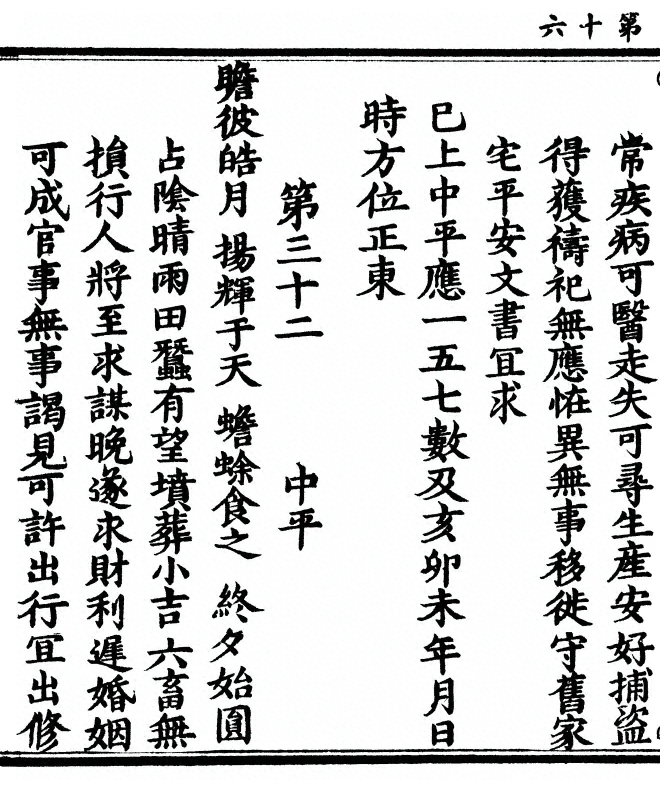 第十六
常疾病可醫走失可尋生産安好捕盜
得獲禱祀無應恠異無事移徙守舊家
宅平安文書冝求
已上中平應一五七數及亥卯未年月日
時方位正東
第三十二 中平
瞻彼皓月 揚輝于天 蟾蜍食之 終夕始圓
占隂晴雨田蠶有望墳葬小吉六畜無
損行人將至求謀晚遂求財利遲婚姻
可成官事無事謁見可許出行冝出修